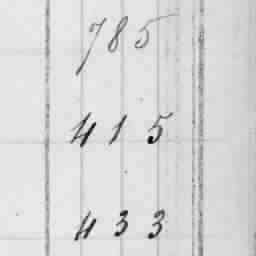 785
415
433